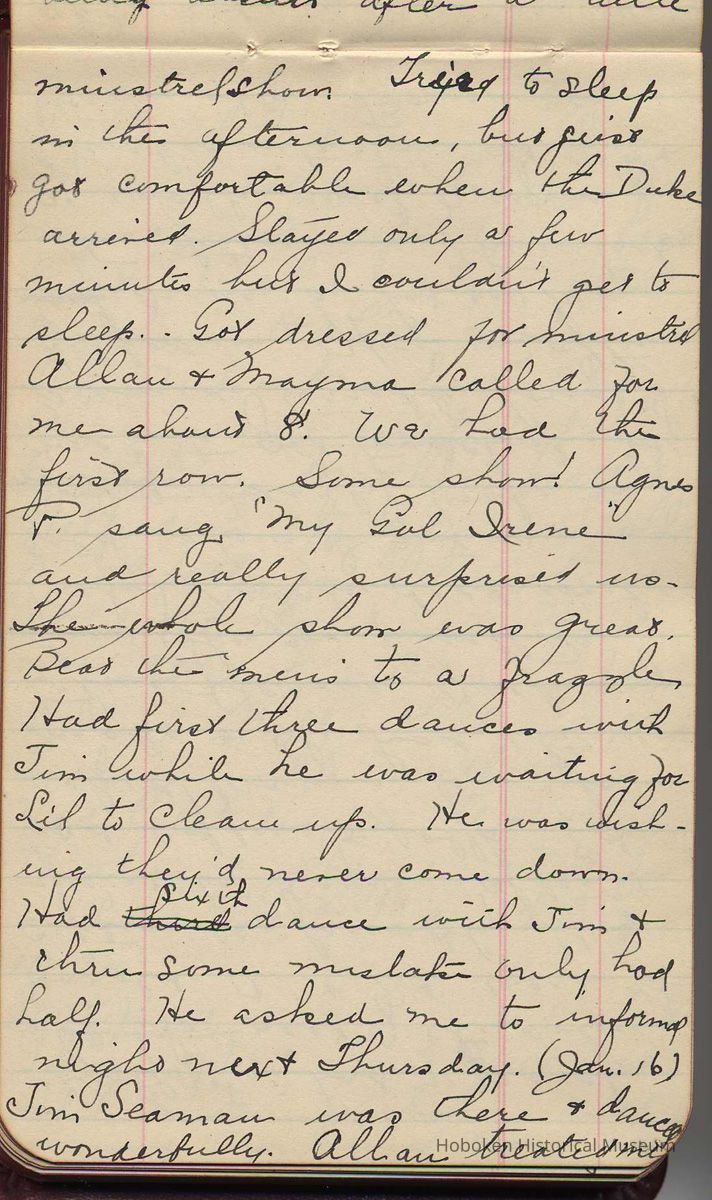 after a little
minstrel show. Tried to sleep
in the afternoon, but just
got comfortable when the Duke
arrived. Stayed only a few
minutes but I couldn't get to
sleep. - Got dressed for minstrel
Allan & Mayma called for
me about 8. We had the
first row. Some show! Agnes
P. sang "My Gal Irene"
and really surprised us -
The whole show was great.
Beat the men's to a frazzle.
Had first three dances with
Jim while he was waiting for
Lil to clean up. He was wish-
ing they'd never come down.
sixth
Had third dance with Jim &
thru some mistake only had
half. He asked me to informal
night next Thursday. (Jan. 16)
Jim Seaman was there & dances
wonderfully. Allan treated me
Hoboken Historical Museum